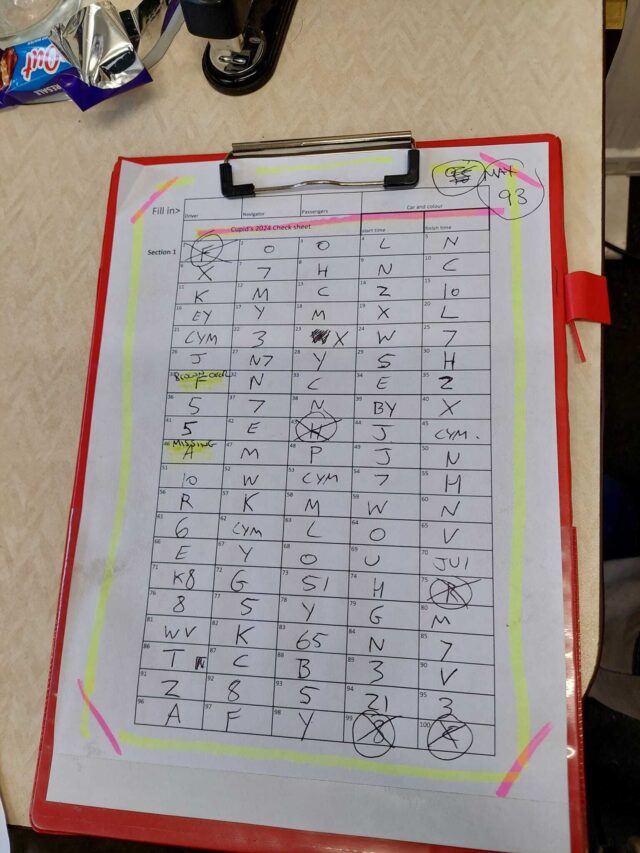 Out
RESALE
MAX
93
Fill in>
Driver Navigator Passengers Car and colour
Cupid's 2024 Check sheet start time finish time
Section 1
1 F 2 O 3 O 4 L 5 N
6 X 7 7 8 H 9 N 10 C
11 K 12 M 13 C 14 Z 15 10
16 EY 17 Y 18 M 19 X 20 L
21 CYM 22 3 23 X 24 W 25 7
26 J 27 N7 28 Y 29 5 30 H
31 F 32 N 33 C 34 E 35 Z
36 5 37 7 38 N 39 BY 40 X
41 5 42 E 43 H 44 J 45 CYM.
46 MISSING A 47 M 48 P 49 J 50 N
51 10 52 W 53 CYM 54 7 55 H
56 R 57 K 58 M 59 W 60 N
61 6 62 CYM 63 L 64 O 65 V
66 E 67 Y 68 O 69 U 70 JU1
71 K8 72 G 73 51 74 H 75 R
76 8 77 5 78 Y 79 G 80 M
81 WV 82 K 83 65 84 N 85 7
86 T 87 C 88 B 89 3 90 V
91 Z 92 8 93 5 94 21 95 3
96 A 97 F 98 Y 99 100